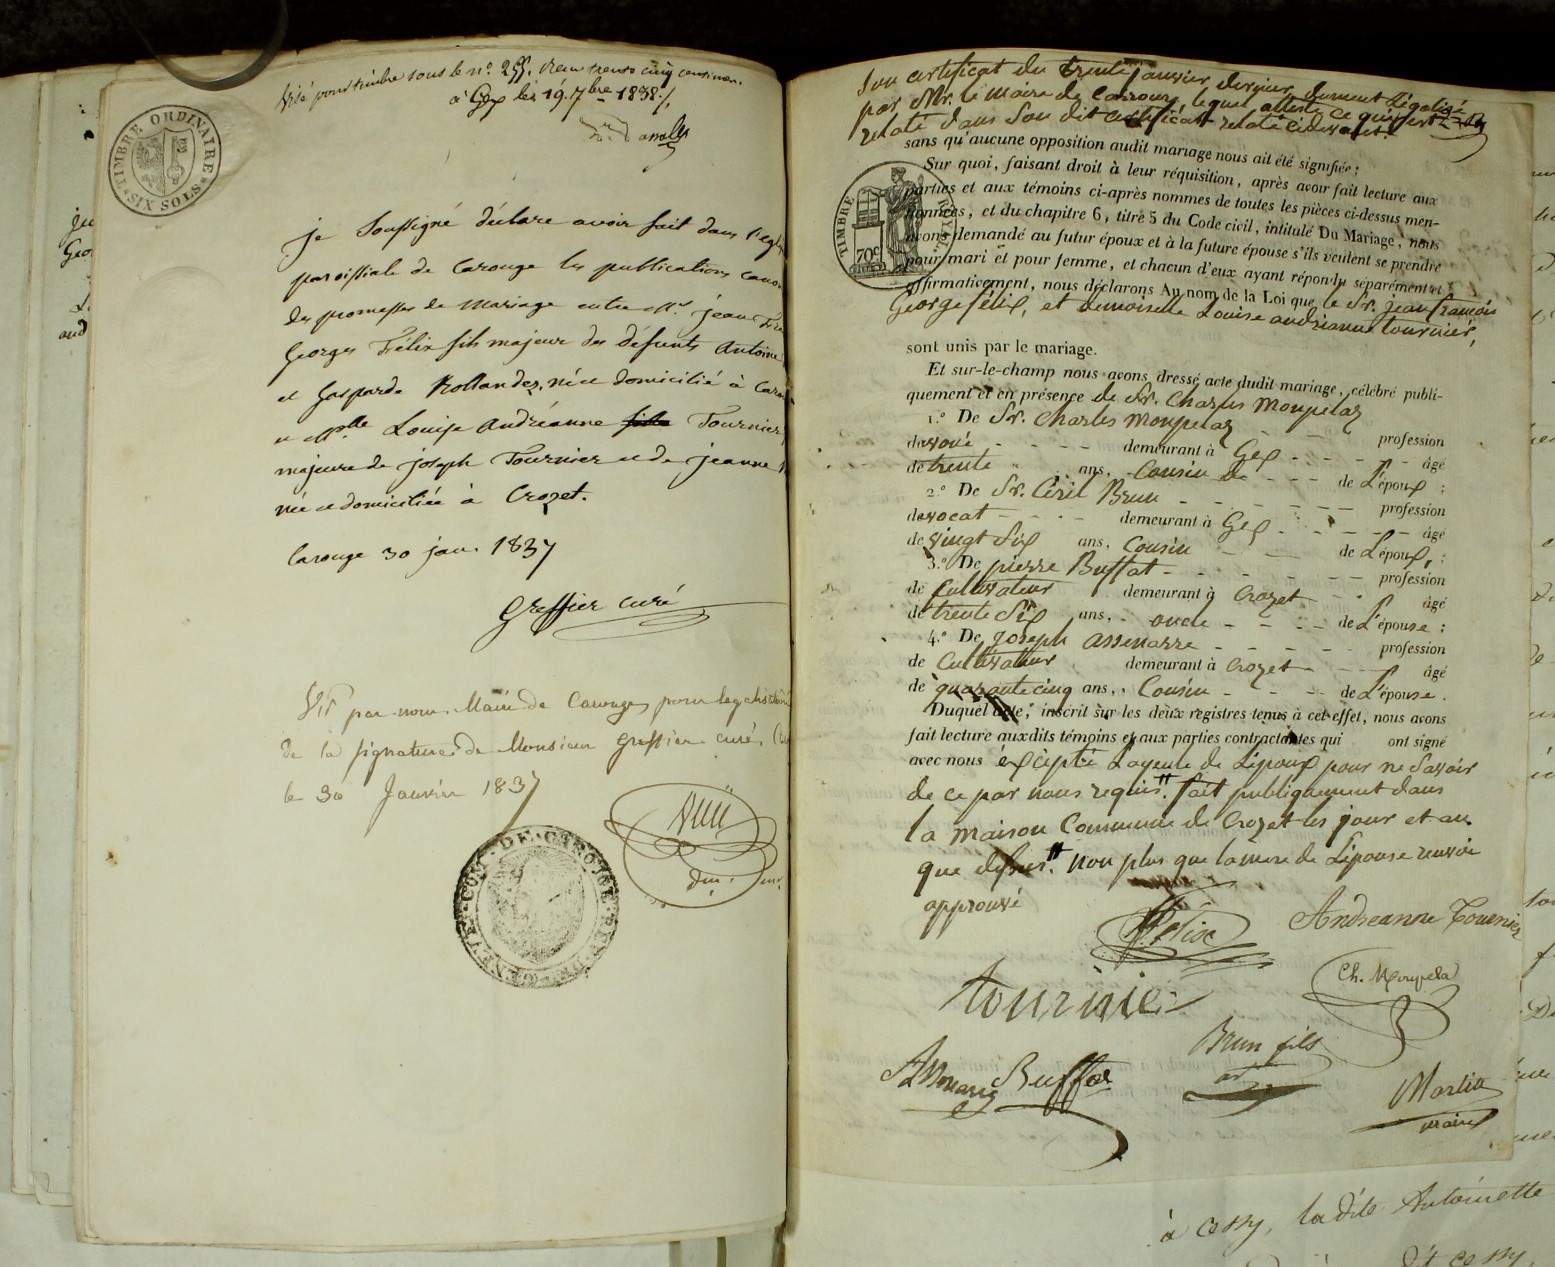 Visé pour timbre sous le n.° 255. Reçu trente cinq centimes.
à Gex le 19. 7bre 1838.
TIMBRE ORDINAIRE
SIX SOLS
je soussigné déclare avoir fait dans l'égl
paroissiale de Carouge les publications cano
des promesses de mariage entre Mr. jean Fra
Georges Félix fils majeur des défunts Antoine
et Gasparde Rollandez, né et domicilié à Caro
et Mlle Louise Andréanne fille Tournier
majeure de joseph Tournier et de jeanne
née et domiciliée à Crozet.
Carouge 30 jan. 1837
Greffier curé
Vu par nous Maire de Carouge, pour legalisation
de la signature de Monsieur Greffier curé.
le 30 Janvier 1837
COM. DE CAROUGE REP. DE GENEVE
Son certificat du trente janvier dernier, dument légalisé
par Mr. le maire de Carrouge, lequel atteste ce qui est
relaté dans son dit certificat relaté ci devant.
sans qu'aucune opposition audit mariage nous ait été signifiée ;
Sur quoi, faisant droit à leur réquisition, après avoir fait lecture aux
parties et aux témoins ci-après nommés de toutes les pièces ci-dessus men-
tionnées, et du chapitre 6, titre 5 du Code civil, intitulé Du Mariage, nous
avons demandé au futur époux et à la future épouse s'ils veulent se prendre
pour mari et pour femme, et chacun d'eux ayant répondu séparément et
affirmativement, nous déclarons Au nom de la Loi que le Sr. jean francois
TIMBRE ROYAL
70c
George félix, et demoiselle Louise andrianne tournier,
sont unis par le mariage.
Et sur-le-champ nous avons dressé acte dudit mariage, célébré publi-
quement et en présence de Sr. Charles Monpelaz
1.° De Sr. Charles Monpelaz profession
d'avoué demeurant à Gex âgé
de trente ans, Cousin de de L'époux ;
2.° De Sr. Ciril Brun profession
d'avocat demeurant à Gex âgé
de vingt six ans, Cousin de L'époux, ;
3.° De pierre Buffat profession
de Cultivateur demeurant à Crozet âgé
de trente six ans, oncle de L'épouse ;
4.° De Joseph assenarre profession
de Cultivateur demeurant à Crozet âgé
de quarante cinq ans, Cousin de L'épouse.
Duquel acte, inscrit sur les deux registres tenus à cet effet, nous avons
fait lecture auxdits témoins et aux parties contractantes qui ont signé
avec nous éxcépté L'ayeule de L'époux pour ne savoir
de ce par nous requis. fait publiquement dans
la maison Commune de Crozet les jour et an
que dessus. non plus que la mere de L'épouse renvoi
approuvé
Félix
Andreanne Tournier
Ch. Monpela
tournier
Brun fils
av
Assenare Buffat
Martin
maire
à Cessy, la dite Antoinette